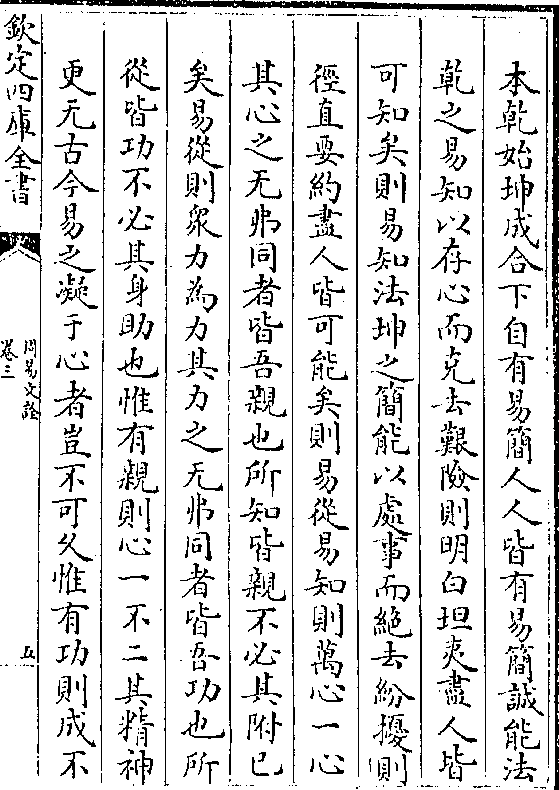 本乾始坤成合下自有易簡人人皆有易簡誠能法
乾之易知以存心而克去艱險則明白坦夷盡人皆
可知矣則易知法坤之簡能以處事而絶去紛擾則
徑直要約盡人皆可能矣則易從易知則萬心一心
其心之无弗同者皆吾親也所知皆親不必其附已
矣易從則衆力為力其力之无弗同者皆吾功也所
從皆功不必其身助也惟有親則心一不二其精神
更无古今易之凝于心者豈不可久惟有功則成不
欽定四庫全書
周易文詮
卷三
五